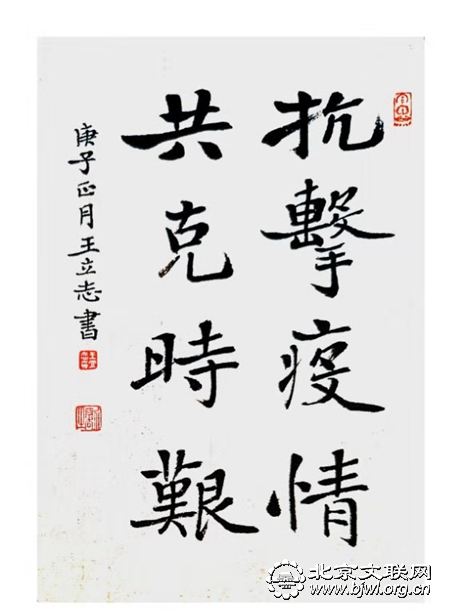 抗擊疫情
共克時艱
庚子正月王立志書
北京文联网
www.bjwl.org.cn